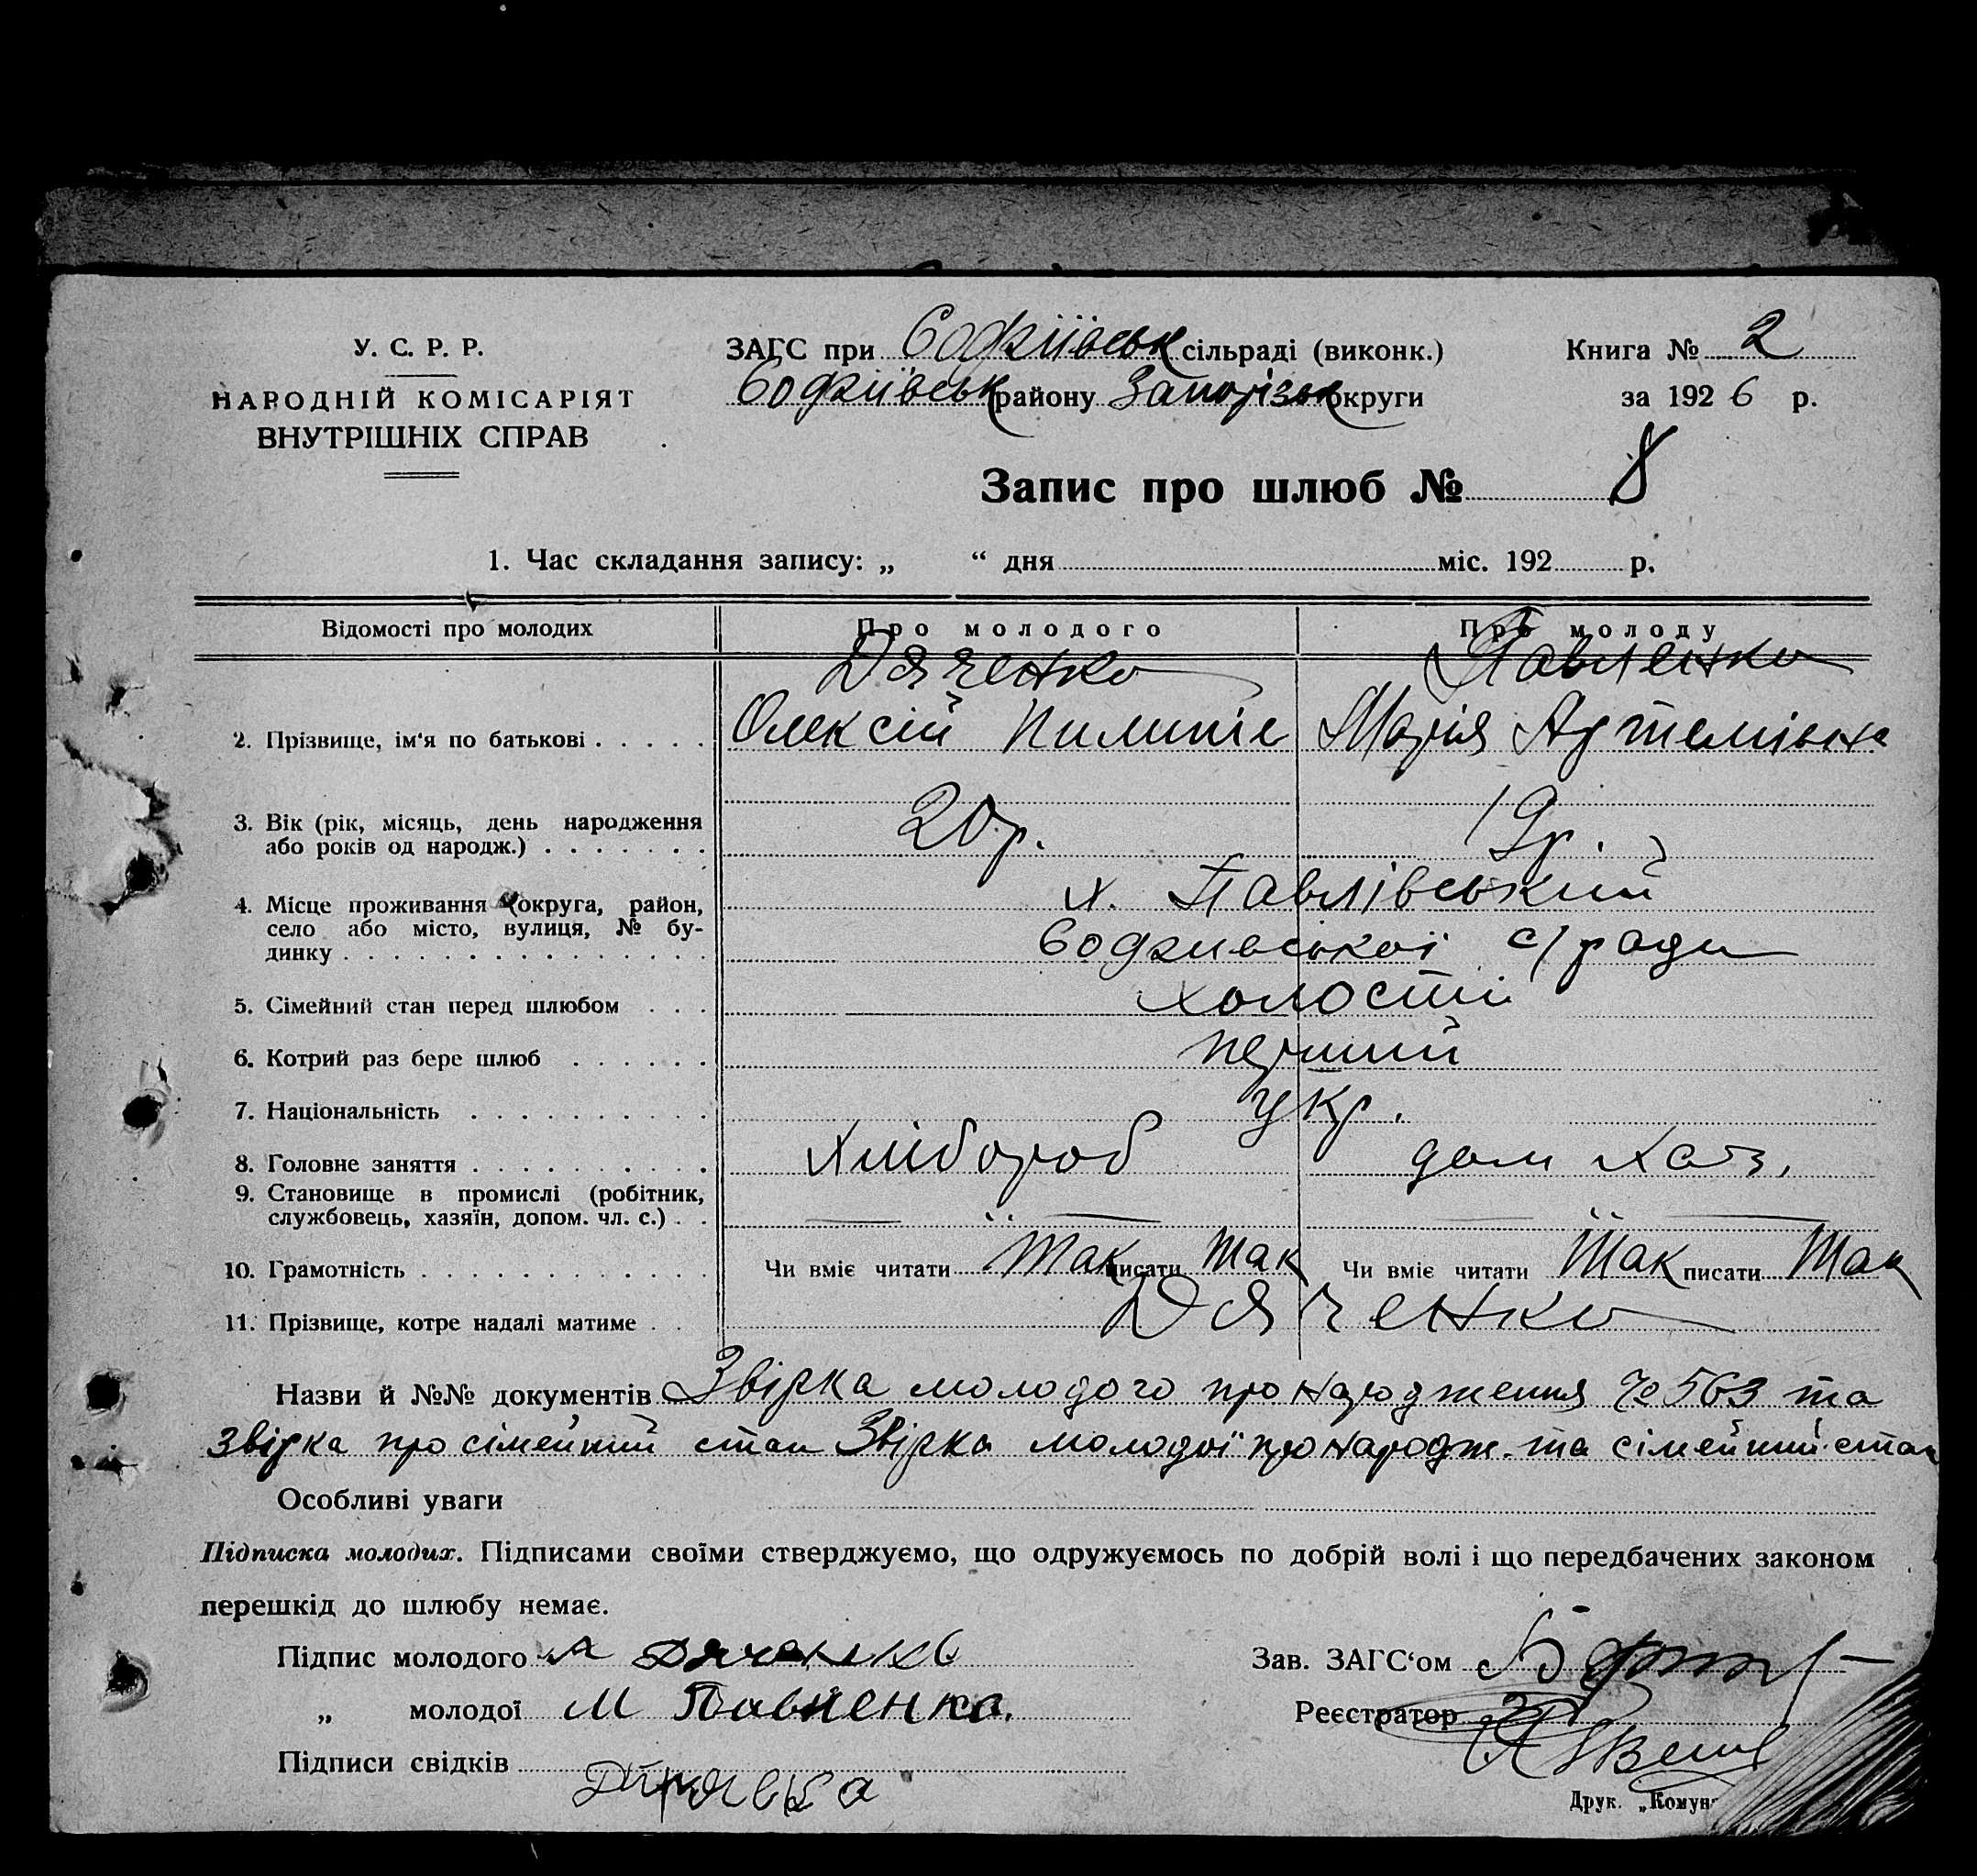 У. С. Р. Р.
НАРОДНІЙ КОМІСАРІЯТ
ВНУТРІШНІХ СПРАВ
ЗАГС при Софіївськ сільраді (виконк.)
Софіївськ району Запорізьк округи
Книга № 2
за 1926 р.
Запис про шлюб № 8
1. Час складання запису: „ “ дня міс. 192 р.
Відомості про молодих Про молодого Про молоду
Дяченко Павленко
2. Прізвище, ім'я по батькові Олексій Пилипів Марія Артемівна
3. Вік (рік, місяць, день народження
або років од народж.) 20 р. 19 р.
4. Місце проживання (округа, район, х. Павлівський
село або місто, вулиця, № бу-
динку Софиївської с/ради
5. Сімейний стан перед шлюбом холостий
6. Котрий раз бере шлюб перший
7. Національність укр.
8. Головне заняття Хлібороб дом хоз.
9. Становище в промислі (робітник,
службовець, хазяїн, допом. чл. с.)
10. Грамотність Чи вміє читати Так писати Так Чи вміє читати Так писати Так
11. Прізвище, котре надалі матиме Дяченко
Назви й №№ документів Звірка молодого про народження № 563 та
звірка про сімейний стан Звірка молодої про народж. та сімейний стан
Особливі уваги
Підписка молодих. Підписами своїми стверджуємо, що одружуємось по добрій волі і що передбачених законом
перешкід до шлюбу немає.
Підпис молодого А Дяченко
„ молодої М Павленко.
Підписи свідків
Зав. ЗАГС'ом
Реєстратор
Друк. „Комун